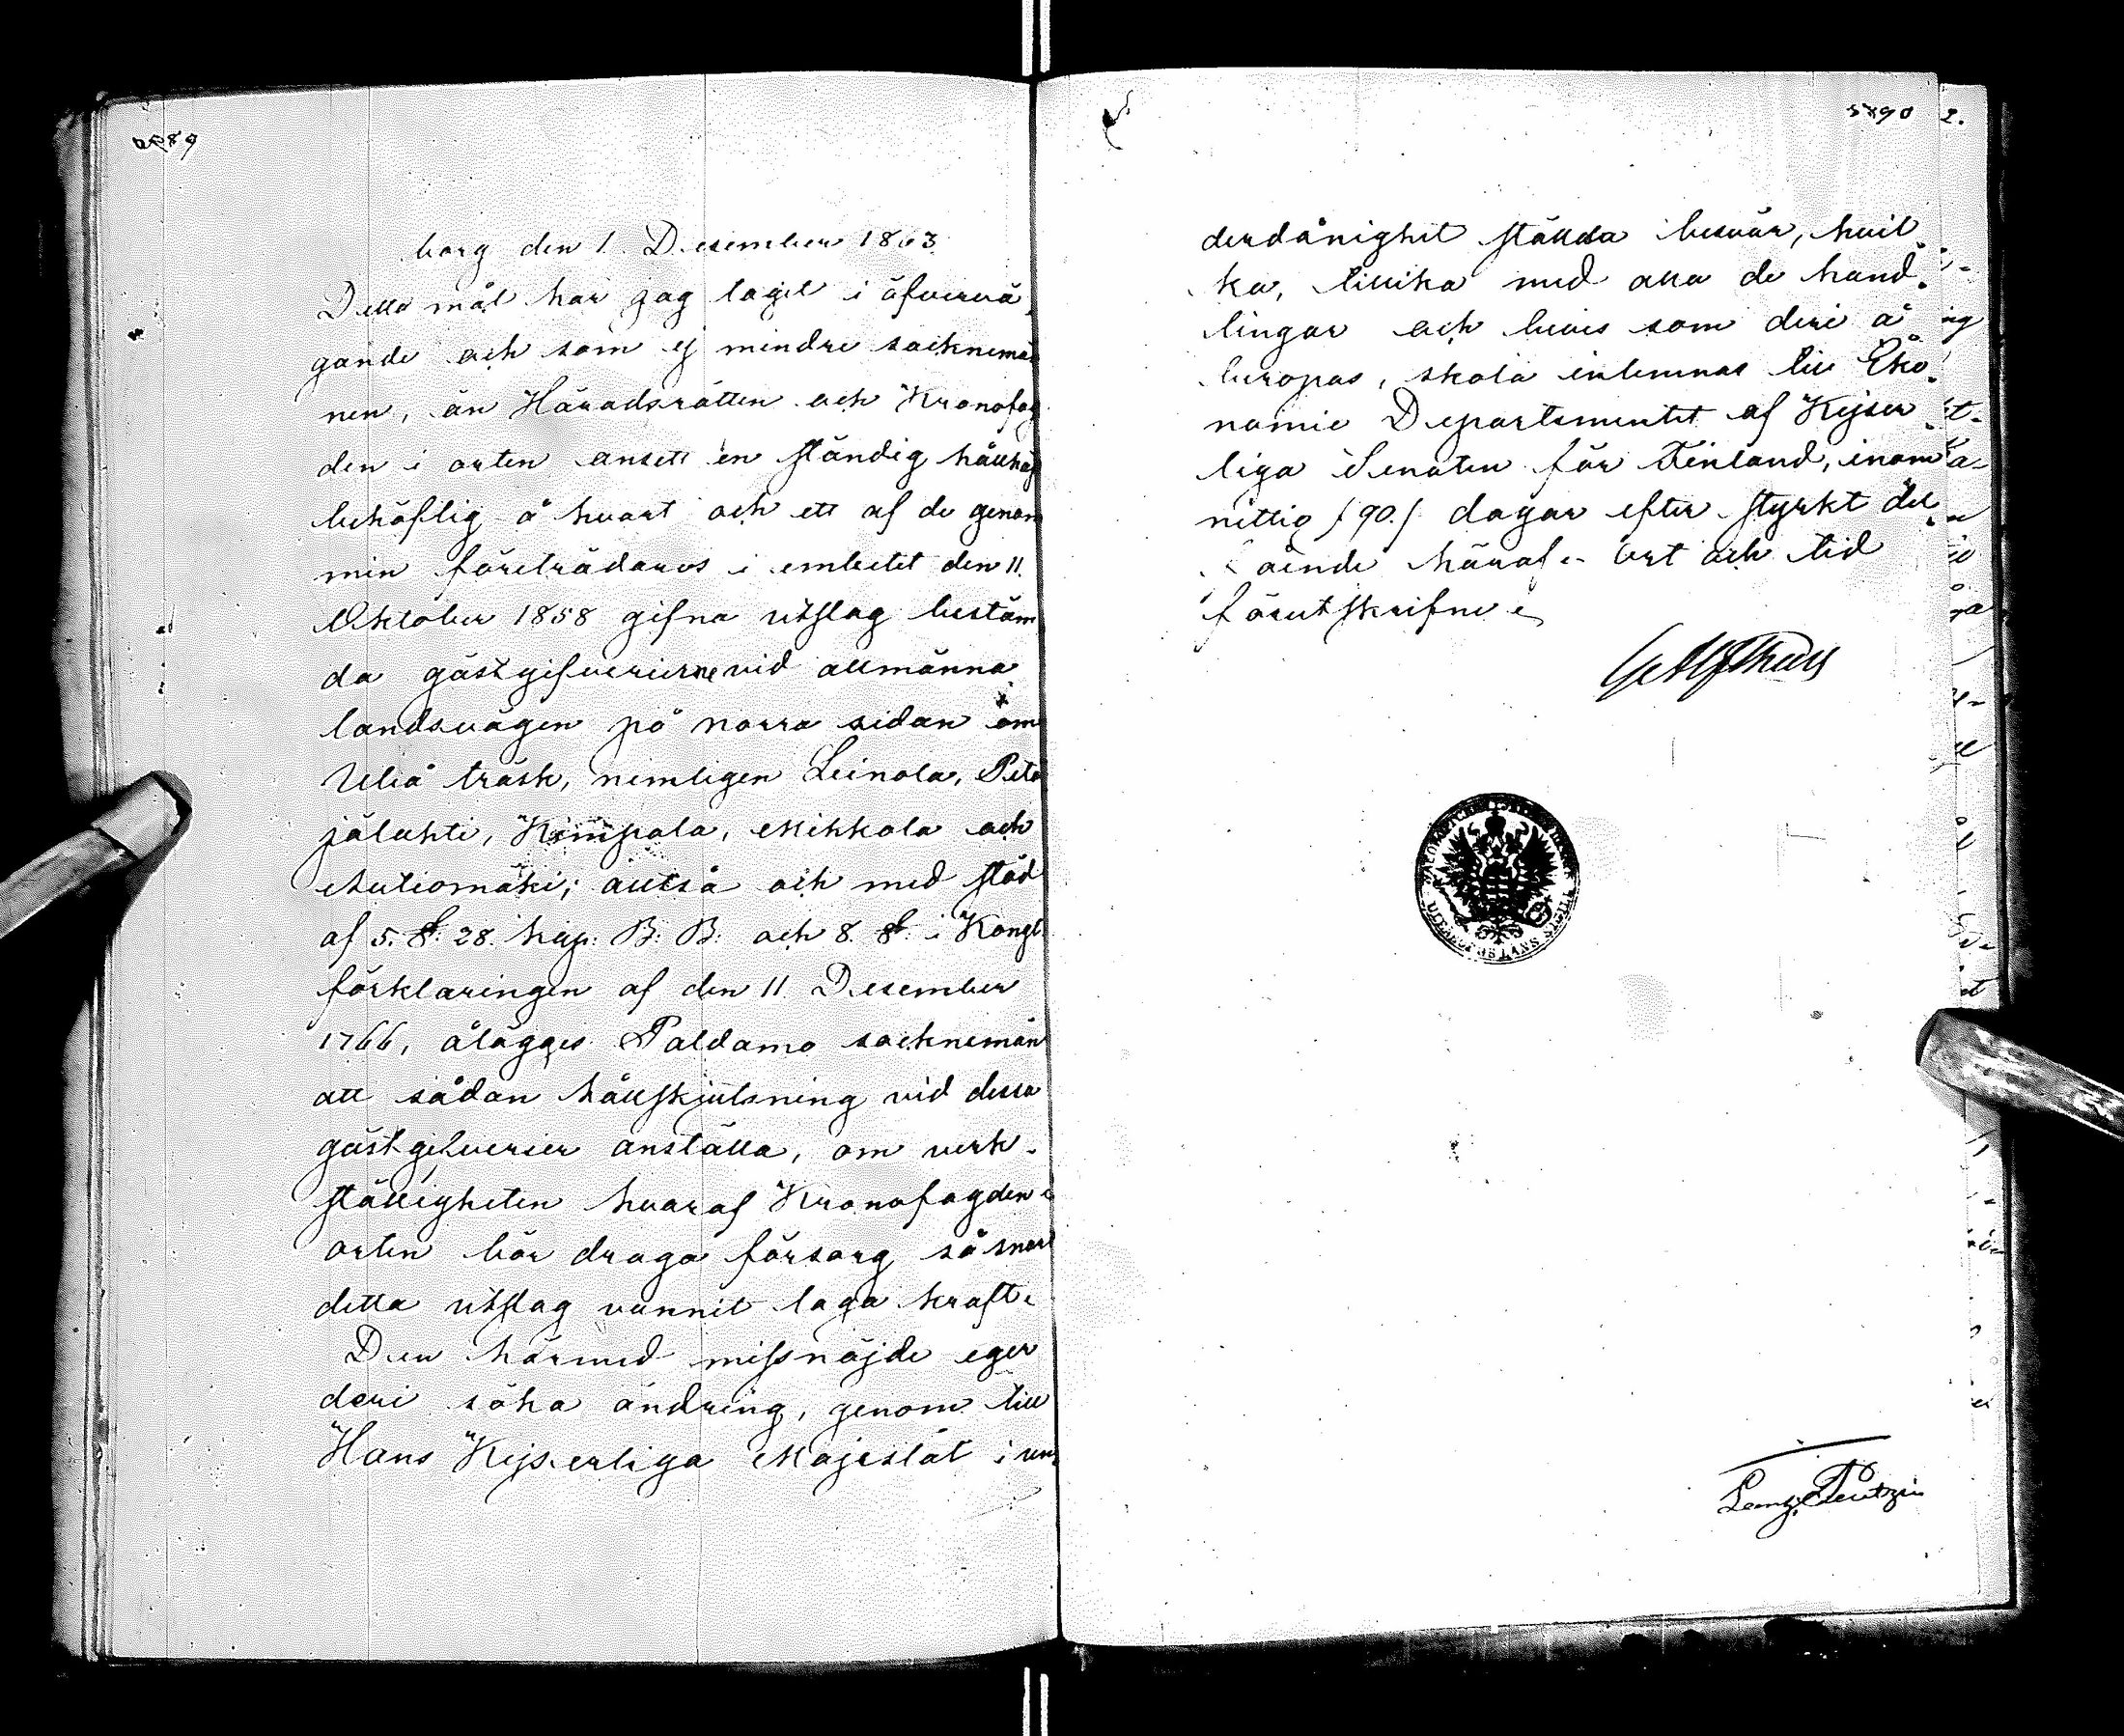 borg den 1. December 1863.
Detta mål har jag tagit i öfvervä
gande och som ej mindre socknemän
nen, än Häradsrätten och Kronofog
den i orten ansett en ständig hållhäst
behöflig å hvart och ett af de genom
min företrädares i embetet den 11.
Oktober 1858 gifna utslag bestäm
da gästgifverierne vid allmänna
landsvägen på norra sidan om
Uleå träsk, nemligen Leinola, Peta
jälahti, Kimpala, Mikkola och
Autiomäki; alltså och med stöd
af 5. §: 28. kap: B: B: och 8. §: i Kongl.
förklaringen af den 11 December
1766, ålägges Paldamo socknemän
att sådan hållskjutsning vid dessa
gästgifverier anställa, om verk-
ställigheten hvaraf Kronofogden i
orten bör draga försorg så snart
detta utslag vunnit laga kraft.
Den härmed missnöjde eger
deri söka ändring, genom till
Hans Kejserliga Majestät i un
derdånighet ställda besvär, hvil
ka, tillika med alla de hand
lingar och bevis som deri å
beropas, skola inlemnas till Eko
nomie Departementet af Kejser
liga Senaten för Finland, inom
nittio /90./ dagar efter styrkt del
ående häraf. Ort och tid
förutskrifne.
ULEÅBORGS LÄNS SIGILL